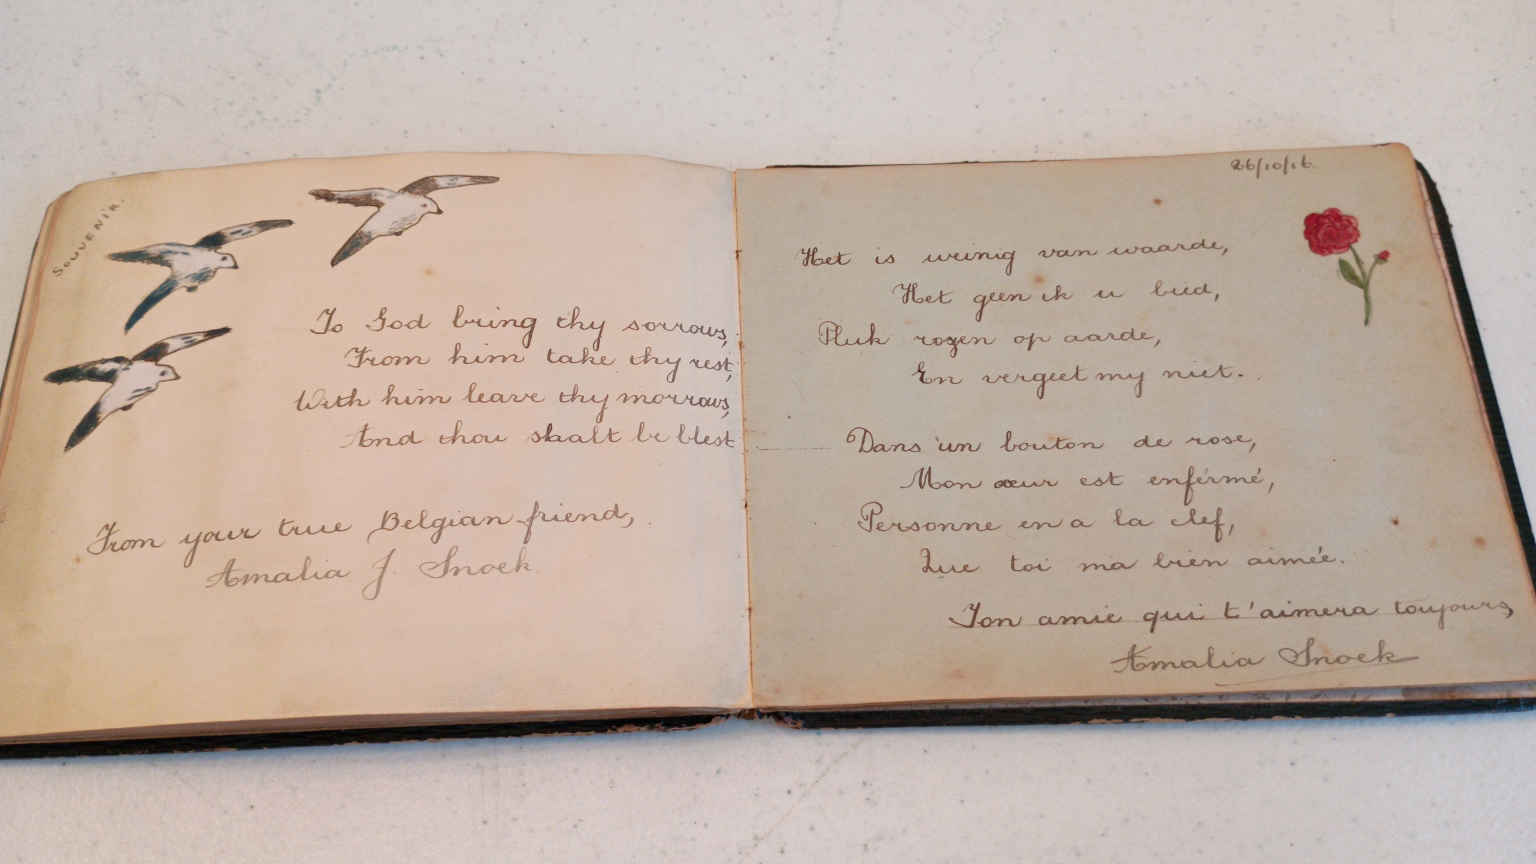 SOUVENIR.
To God bring thy sorrows,
From him take thy rest,
With him leave thy morrows,
And thou shalt be blest
From your true Belgian friend,
Amalia J. Snoek
26/10/16.
Het is weinig van waarde,
Het geen ik u bied,
Pluk rozen op aarde,
En vergeet my niet.
Dans un bouton de rose,
Mon cœur est enfermé,
Personne en a la clef,
Que toi ma bien aimée.
Ton amie qui t'aimera toujours,
Amalia Snoek